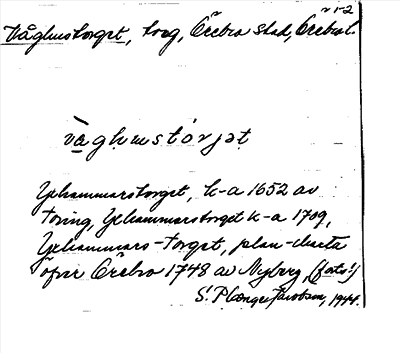 r 1-2
Våghustorget, torg, Örebro stad, Örebro l.
vа̀ghustórjət
Yxhammarstorget, k-a 1652 av
Toring, Yxhammarstorget k-a 1709,
Yxhammars-torget, plan-charta
öfver Örebro 1748 av Nyberg, (forts!)
S. Jacobson, 1944.